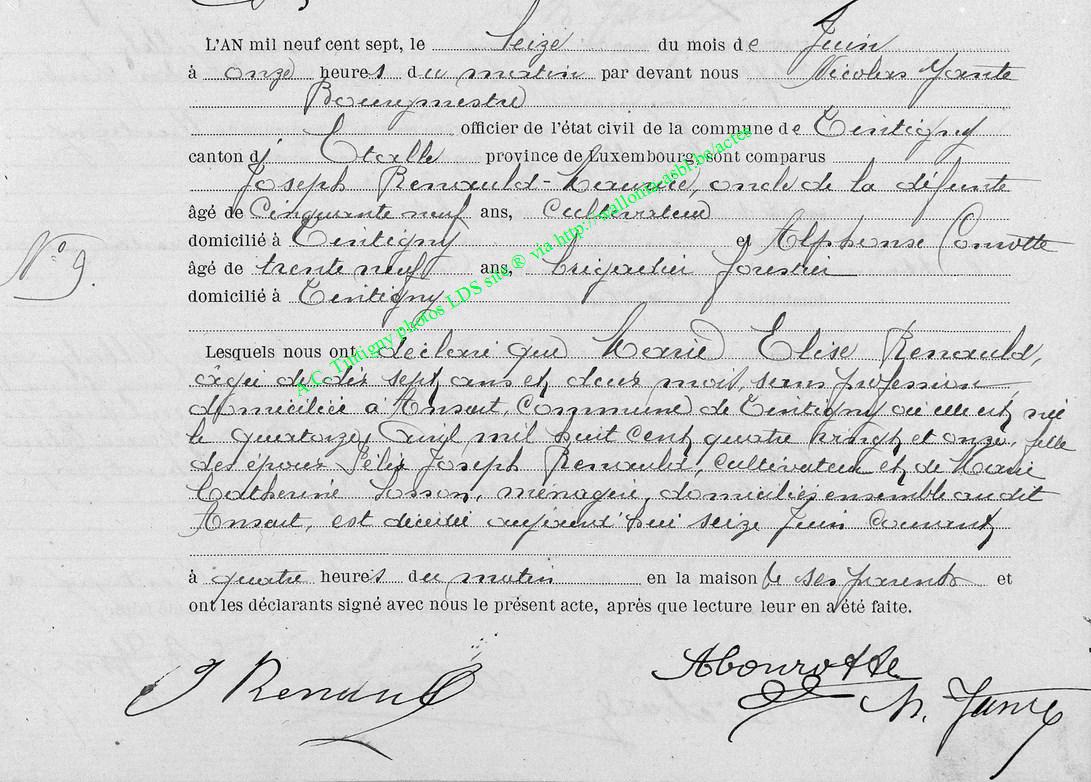 L'AN mil neuf cent sept, le seize du mois de Juin
à onze heures du matin par devant nous Nicolas Jante
Bourgmestre
officier de l'état civil de la commune de Tintigny
canton d' Etalle province de Luxembourg, sont comparus
Joseph Renauld- oncle de la défunte
âgé de Cinquante neuf ans, Cultivateur
domicilié à Tintigny et Alphonse
N° 9.
âgé de trente neuf ans, brigadier forestier
domicilié à Tintigny
A.C. Tintigny photos LDS snc ® via http://wallonia-asbl.be/actes
Lesquels nous ont déclaré que Marie Elise Renauld,
âgée de dix sept ans et deux mois, sans profession
domiciliée à Ansart, Commune de Tintigny où elle est née
le quatorze Avril mil huit cent quatre vingt et onze, fille
des époux Félix Joseph Renauld, cultivateur et de Marie
Catherine ménagère, domiciliés ensemble au dit
Ansart, est décédée aujourd'hui seize Juin courant
à quatre heures du matin en la maison de ses parents et
ont les déclarants signé avec nous le présent acte, après que lecture leur en a été faite.
J Renauld
N. Jante